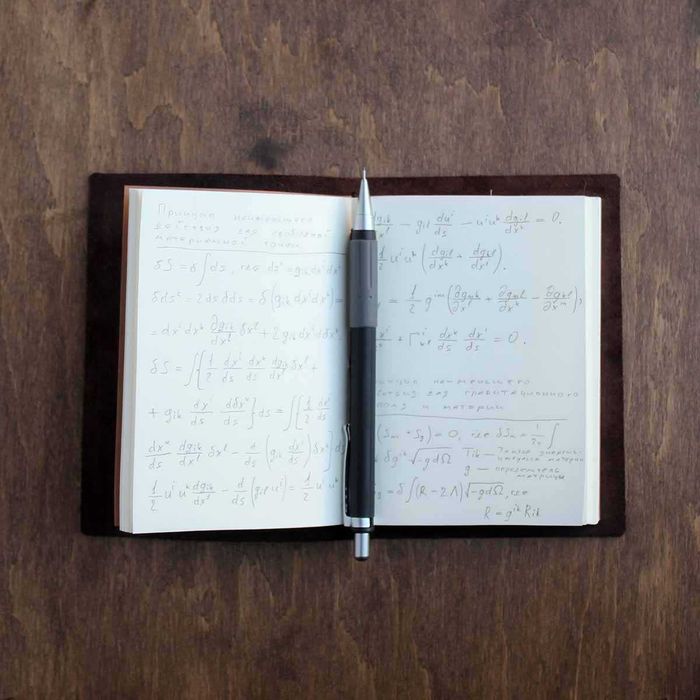 Принцип наименьшего
действия для свободной
материальной точки
δS = δ∫ds, где ds² = gik dxⁱ dxᵏ
δds² = 2ds δds = δ(gik dxⁱ dxᵏ) =
= dxⁱ dxᵏ ∂gik/∂xˡ δxˡ + 2gik dxⁱ dδxᵏ
δS = ∫{1/2 dxⁱ/ds dxᵏ/ds ∂gik/∂xˡ δxˡ +
+ gik dxⁱ/ds dδxᵏ/ds} ds = ∫{1/2 dxⁱ/ds
dxᵏ/ds ∂gik/∂xˡ δxˡ - d/ds (gik dxⁱ/ds) δxᵏ} ds
1/2 uⁱ uᵏ ∂gik/∂xˡ - d/ds (gil uⁱ) = 1/2 uⁱ uᵏ
∂gik/∂xˡ - gil duⁱ/ds - uⁱ uᵏ ∂gil/∂xᵏ = 0.
uⁱ uᵏ (∂gil/∂xᵏ + ∂gkl/∂xⁱ).
= 1/2 gⁱᵐ (∂gmk/∂xˡ + ∂gml/∂xᵏ - ∂gkl/∂xᵐ),
+ Γⁱkl dxᵏ/ds dxˡ/ds = 0.
наименьшего
для гравитационного
поля и материи
(Sm + Sg) = 0, где δSm = 1/2c ∫
δgⁱᵏ √-g dΩ Tik — тензор энергии-
импульса материи
g — определитель
матрицы
= δ∫(R - 2Λ)√-g dΩ, где
R = gⁱᵏ Rik